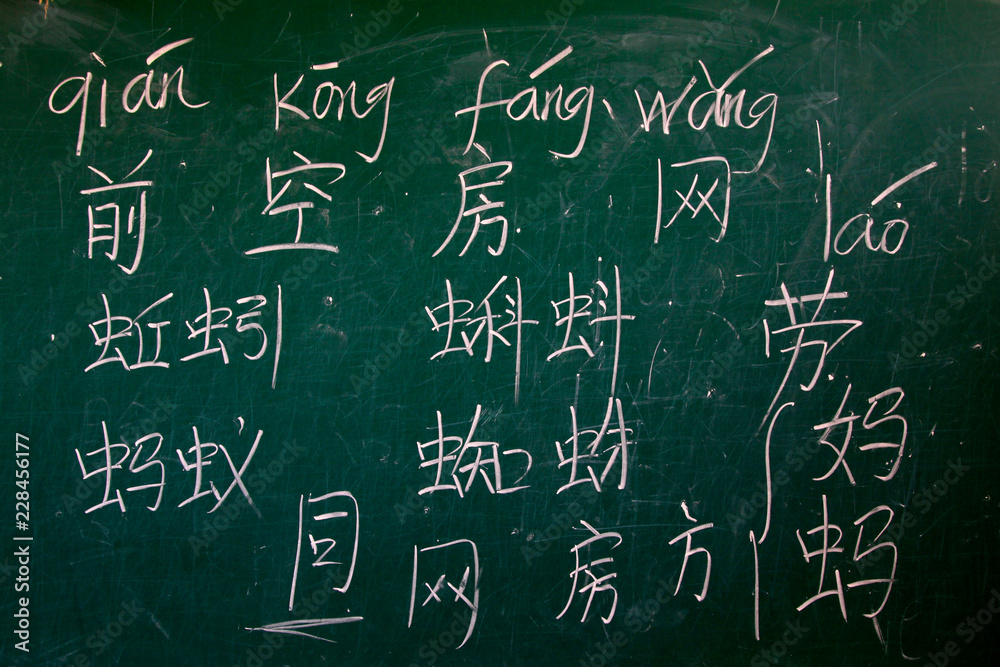 qián kōng fáng wǎng
前 空 房 网 láo
蚯蚓 蝌蚪 劳
蚂蚁 蜘蛛 妈
同 网 房 方 蚂
Adobe Stock | #228456177